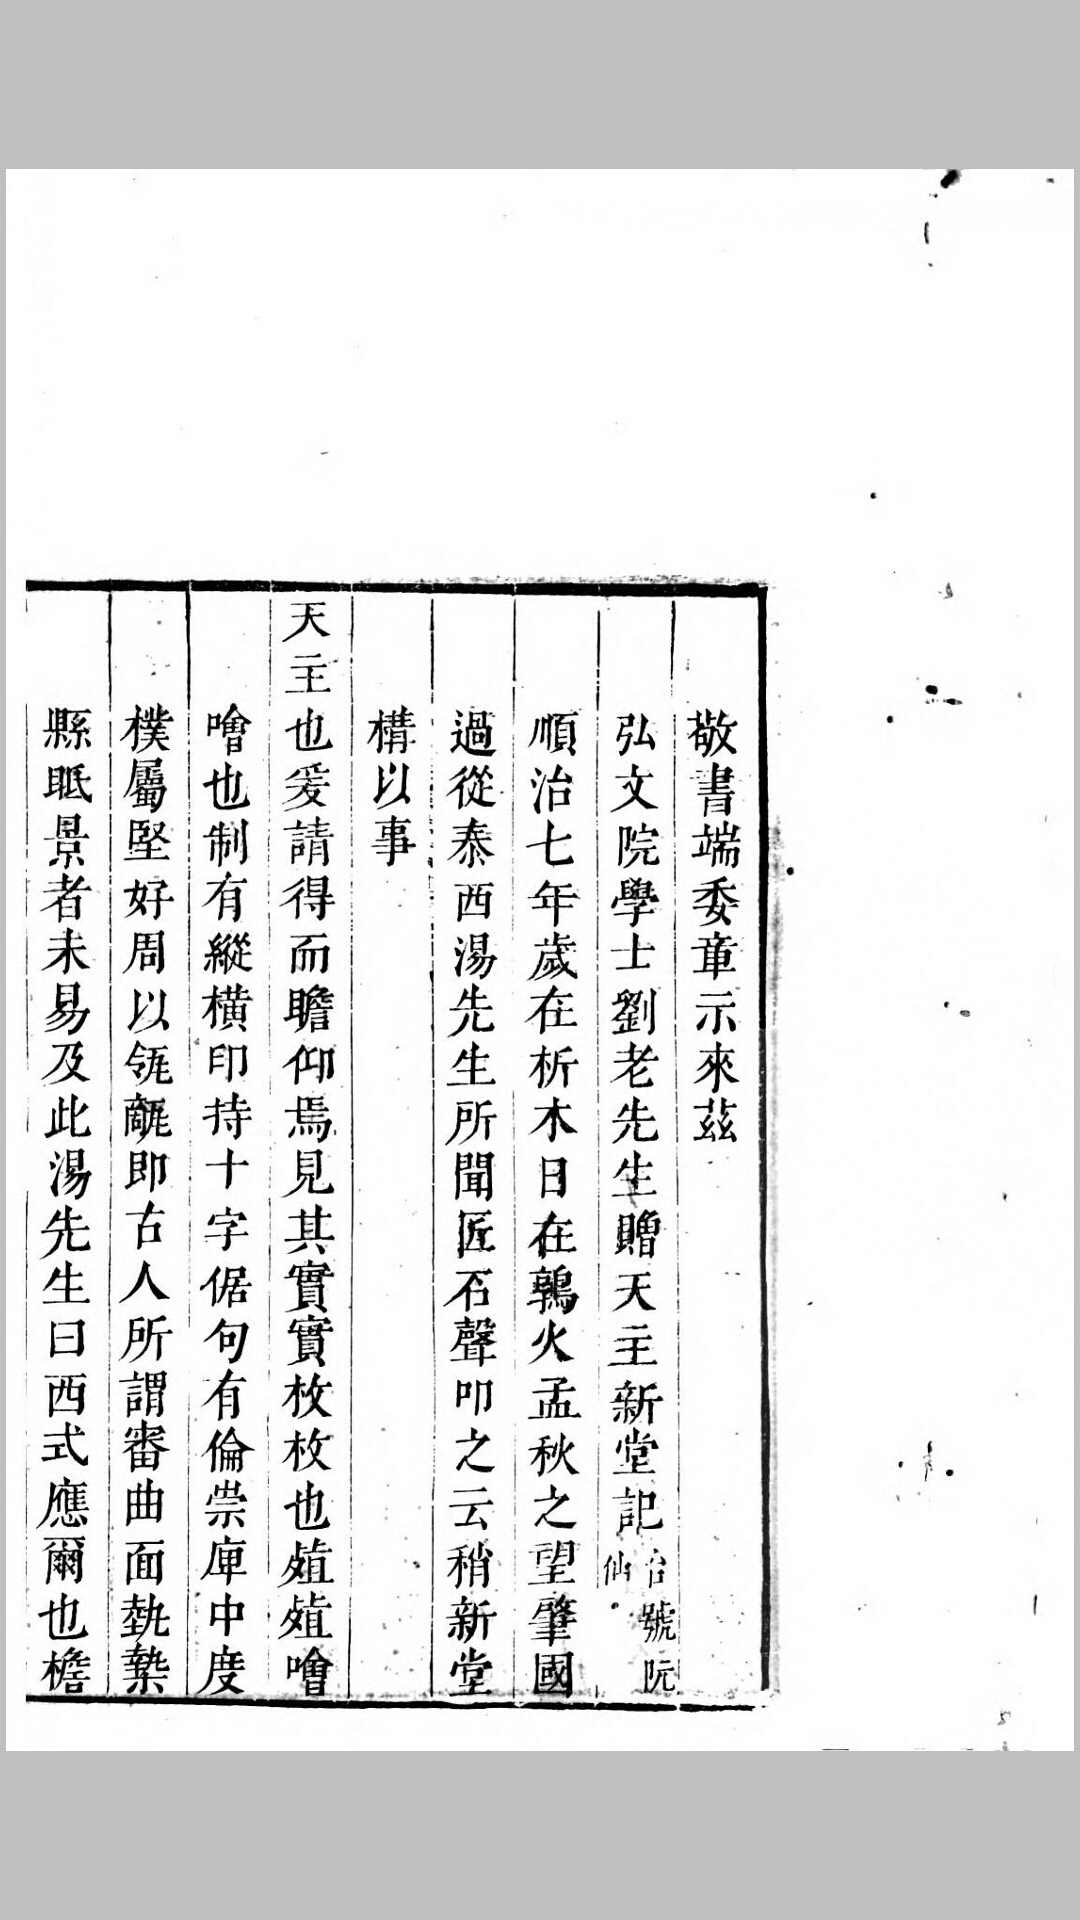 敬書端委章示來茲
弘文院學士劉老先生贈天主新堂記 台號阮仙
順治七年歲在析木日在鶉火孟秋之望肇國
過從泰西湯先生所聞匠石聲叩之云稍新堂
構以事
天主也爰請得而瞻仰焉見其實實枚枚也殖殖噲
噲也制有縱橫印持十字倨句有倫崇庳中度
樸屬堅好周以瓴甋即古人所謂審曲面埶槷
縣眂景者未易及此湯先生曰西式應爾也檐